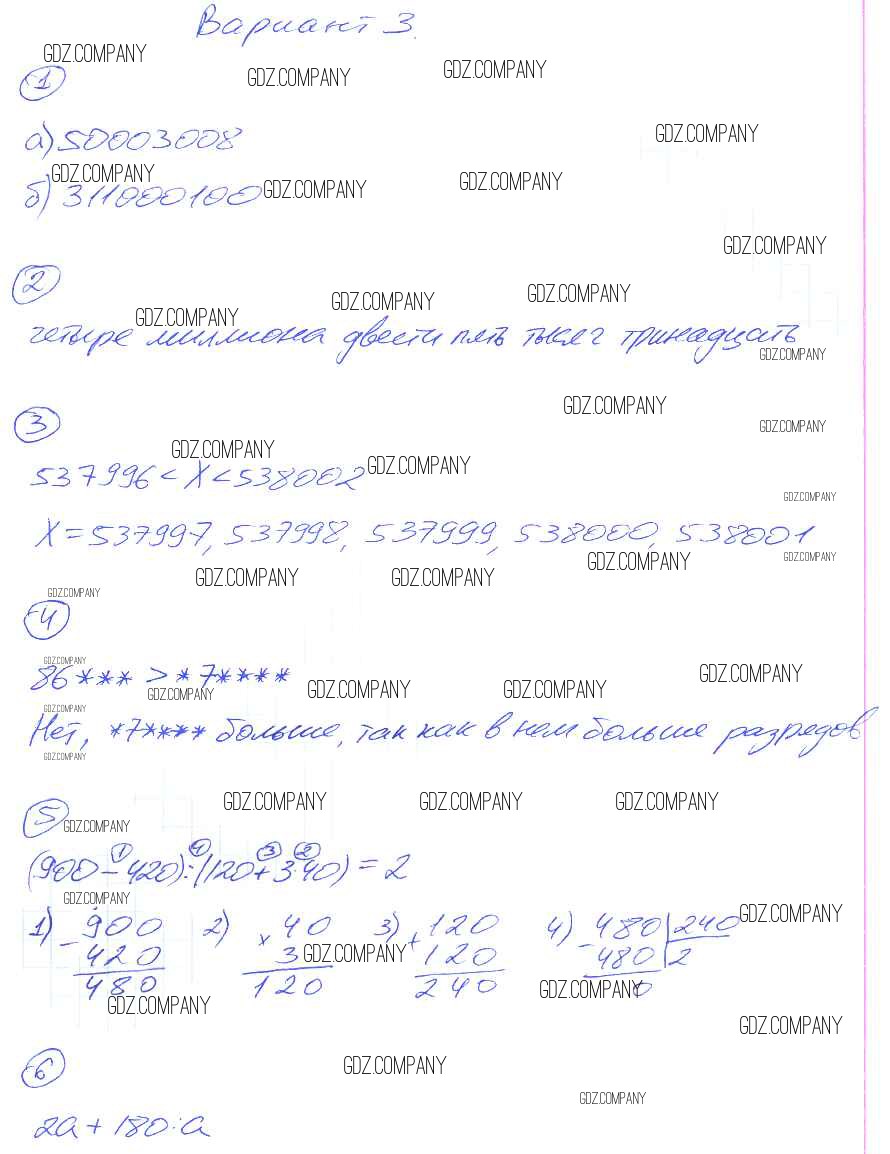 Вариант 3.
GDZ.COMPANY
GDZ.COMPANY
GDZ.COMPANY
1
а) 50003008
GDZ.COMPANY
GDZ.COMPANY
GDZ.COMPANY
GDZ.COMPANY
б) 311000100
GDZ.COMPANY
2
GDZ.COMPANY
GDZ.COMPANY
GDZ.COMPANY
четыре миллиона двести пять тысяч тринадцать
GDZ.COMPANY
3
GDZ.COMPANY
GDZ.COMPANY
GDZ.COMPANY
GDZ.COMPANY
537996 < X < 538002
GDZ.COMPANY
X = 537997, 537998, 537999, 538000, 538001
GDZ.COMPANY
GDZ.COMPANY
GDZ.COMPANY
GDZ.COMPANY
GDZ.COMPANY
4
GDZ.COMPANY
86*** > *7****
GDZ.COMPANY
GDZ.COMPANY
GDZ.COMPANY
GDZ.COMPANY
GDZ.COMPANY
Нет, *7**** больше, так как в нем больше разрядов
GDZ.COMPANY
5
GDZ.COMPANY
GDZ.COMPANY
GDZ.COMPANY
GDZ.COMPANY
1 4 3 2
(900 - 420) : (120 + 3·40) = 2
GDZ.COMPANY
GDZ.COMPANY
1) 900 2) 40 3) 120 4) 480 | 240
- 420 × 3 + 120 - 480 2
GDZ.COMPANY
480 120 240 0
GDZ.COMPANY
GDZ.COMPANY
GDZ.COMPANY
6
GDZ.COMPANY
GDZ.COMPANY
2a + 180 : a